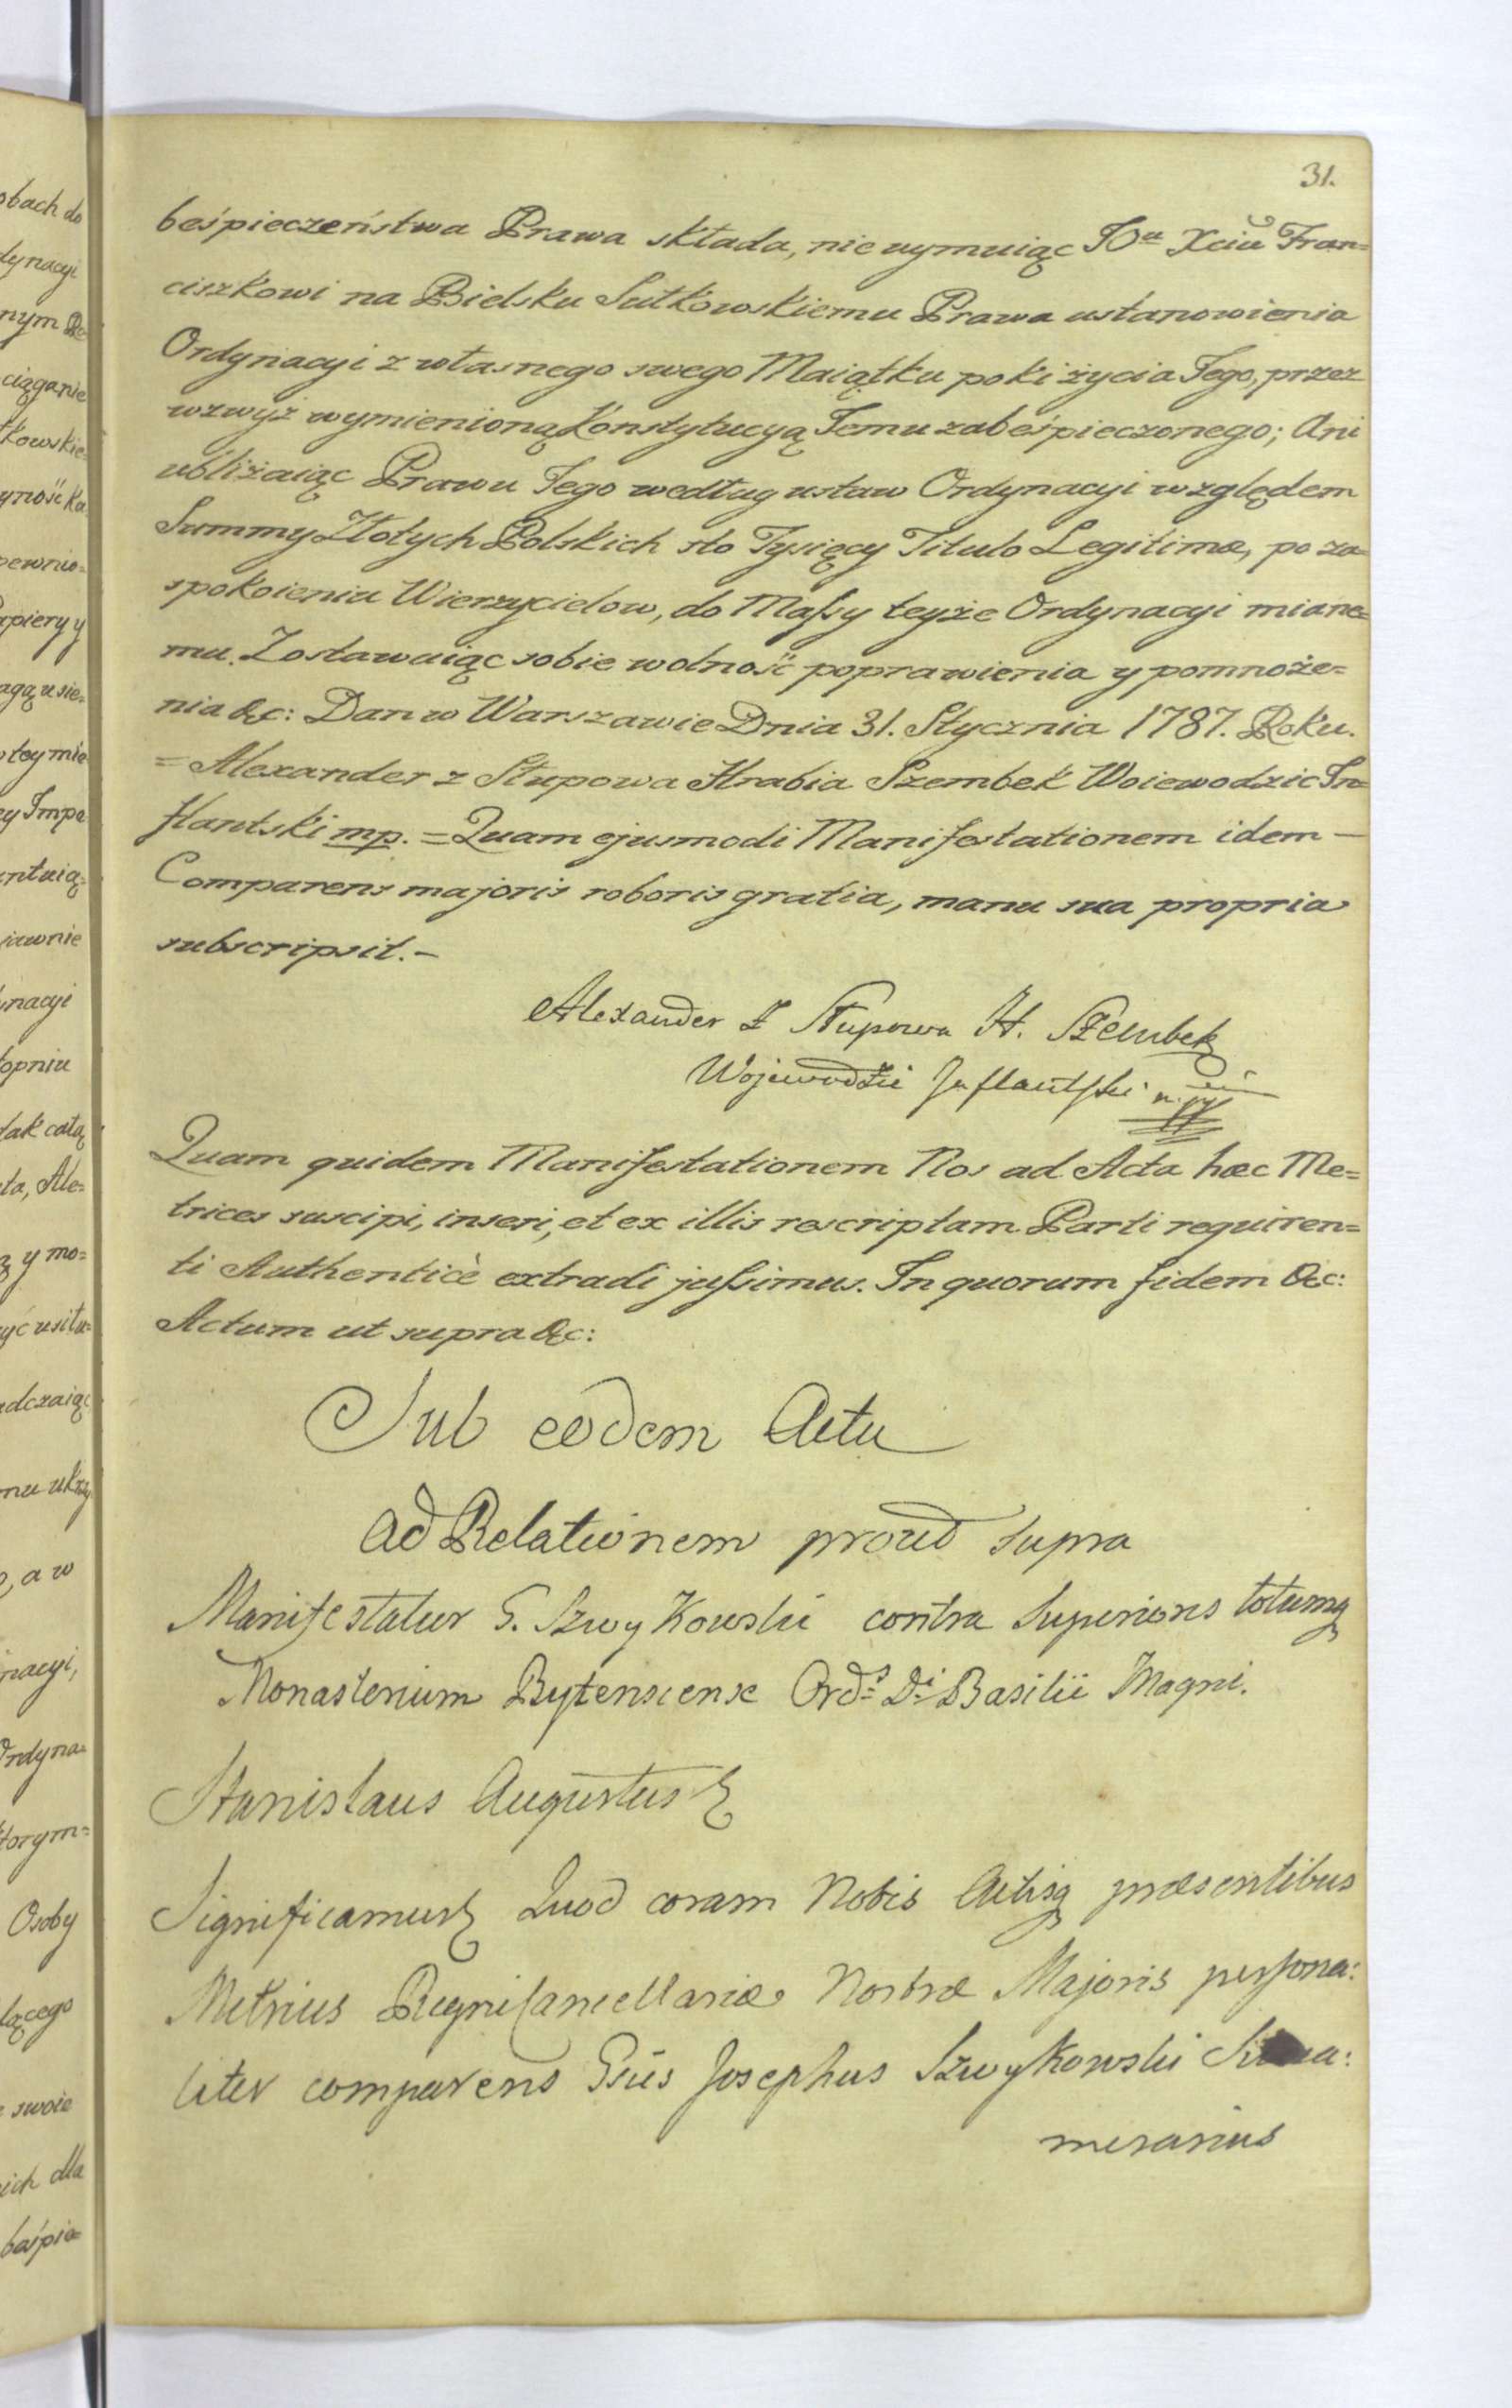 31.
beśpieczeństwa Prawa składa, nie uymuiąc JOu Xciu Fran=
ciszkowi na Bielsku Sułkowskiemu Prawa ustanowienia
Ordynacyi z własnego swego Maiątku poki życia Jego, przez
wzwyż wymienioną Konstytucyą Jemu zabeśpieczonego; Ani
ubliżaiąc Prawu Jego według ustaw Ordynacyi względem
Summy Złotych Polskich sto Tysięcy Titulo Legitimo, po za=
spokoieniu Wierzycielow, do Massy teyże Ordynacyi miane=
mu. Zostawuiąc sobie wolność poprawienia y pomnoże=
nia &c: Dan w Warszawie Dnia 31. Stycznia 1787. Roku.
= Alexander z Słupowa Hrabia Szembek Woiewodzic In=
flantski mp. = Quam ejusmodi Manifestationem idem —
Comparens majoris roboris gratia, manu sua propria
subscripsit. –
Alexander z Słupowa H. Szembek
Wojewodzic Inflantski mp
Quam quidem Manifestationem Nos ad Acta hæc Me=
trices suscipi, inseri, et ex illis rescriptam Parti requiren=
ti Authenticè extradi jussimus. In quorum fidem &c:
Actum ut supra &c:
Sub eodem Actu
Ad Relationem proud supra
Manifestatur G. Szwykowski contra Superiores totumq
Monasterium Bytensiense Ords Di Basilii Magni.
Stanislaus Augustus
Significamus Quod coram Nobis Actisq præsentibus
Metrices Regni Cancellariæ Nostræ Majoris persona:
liter comparens Gsus Josephus Szwykowski
merarius